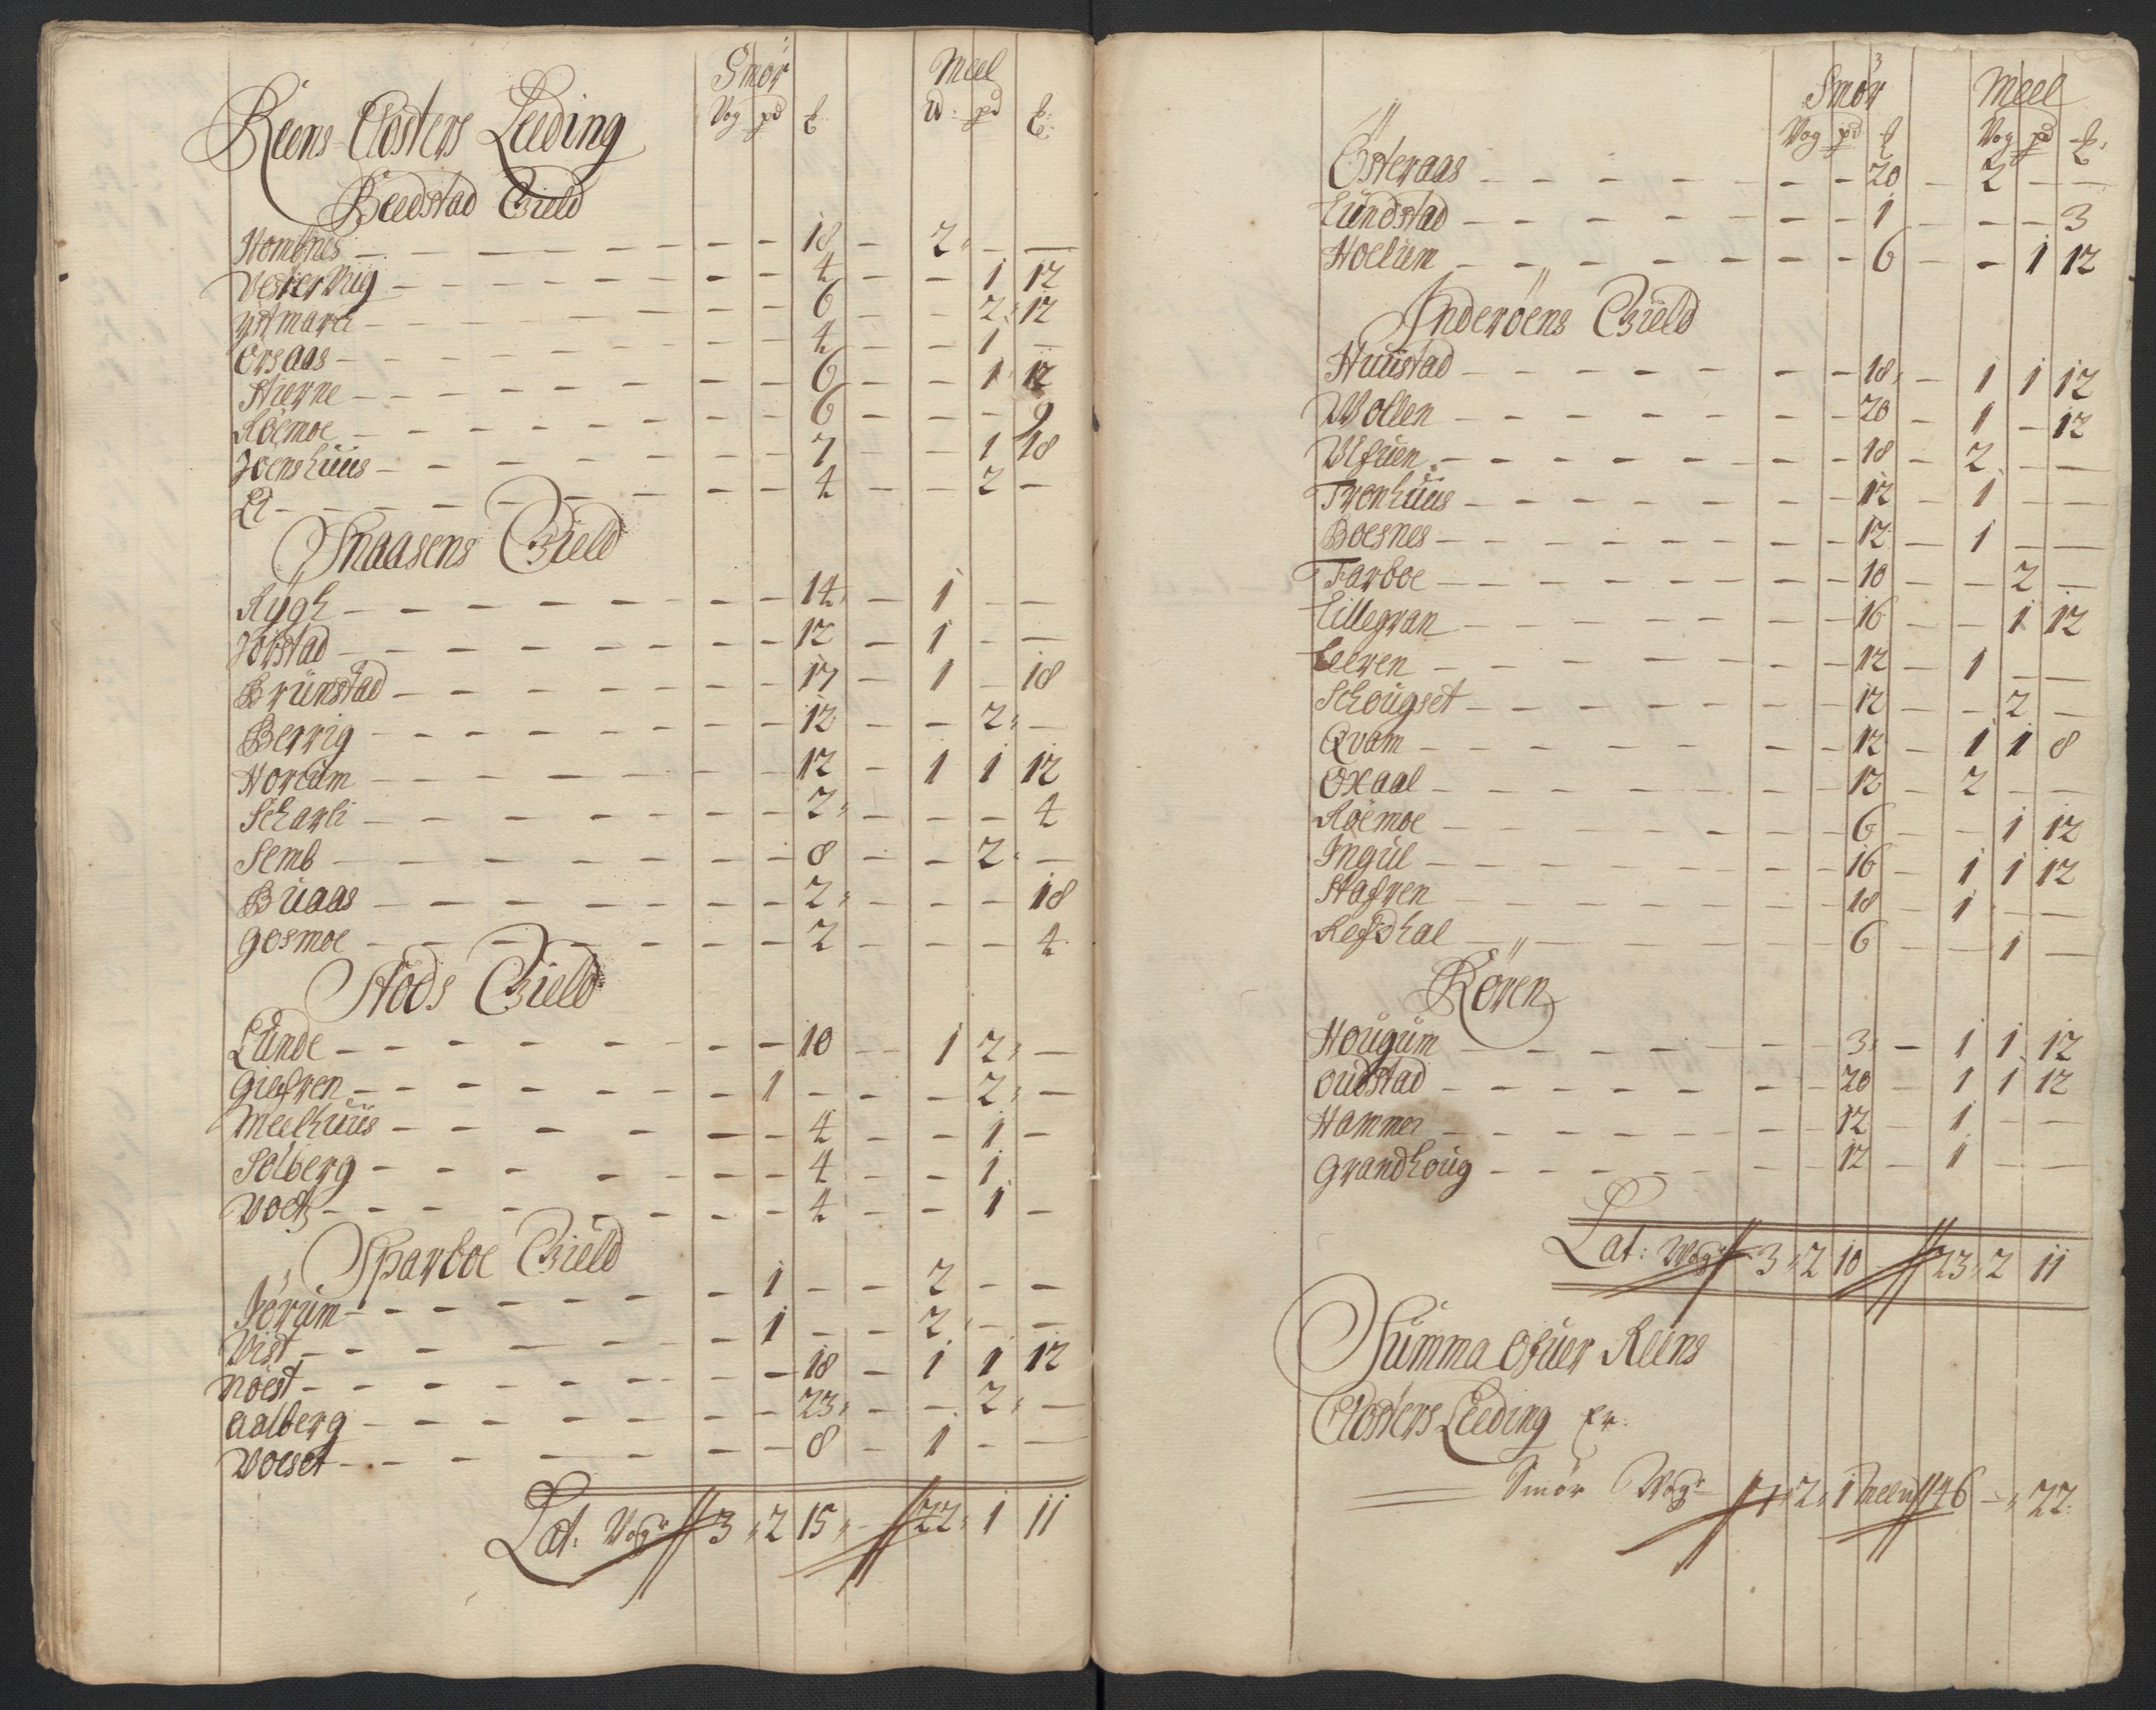 Smør Meel
Vog pd ℔ W: pd ℔:
Reens Closters Leeding
Beedstad Gield
Hombnes — 18 — 2 — —
Vester Viig — 4 — — 1 12
Ystmarck — 6 — — 2 12
Orsaas — 4 — — 1 —
Stierne — 6 — — 1 12
Röemoe — 6 — — — 9
Joenshuus — 7 — — 1 18
Ei — 4 — — 2 —
Snaasens Gield
Rygh — 14 — 1 — —
Jörstad — 12 — 1 — —
Brünstad — 17 — 1 — 18
Berrig — 12 — — 2 —
Horüm — 12 — 1 1 12
Scharli — 2 — — — 4
Semb — 8 — — 2 —
Buaas — 2 — — — 18
Gosmoe — 2 — — — 4
Stods Gield
Lünde — 10 — 1 2 —
Giefren — 1 — — — 2 —
Meelhuüs — 4 — — 1 —
Solberg — 4 — — 1
Voet — 4 — — 1 —
Sparboe Gield
Förum — 1 — — 2 — —
Vist — 1 — — 2 — —
Noest — 18 — 1 1 12
Aalberg — 23 — — 2 —
Woeset — 8 — 1 — —
Lat: Vogr 3 2 15 — 22 1 11
Smör Meel
Vog pd ℔ Vog pd ℔:
Österaas — 20 — 2 — —
Lündstad — 1 — — — 3
Hoelüm — 6 — — 1 12
Inderöens Gield
Huustad — 18 — 1 1 12
Wollen — 20 — 1 — 12
Ulfuen — 18 — 2 — —
Tronhuus — 12 — 1 — —
Boesnes — 12 — 1 — —
Farboe — 10 — — 2 —
Lillegran — 16 — — 1 12
Leeren — 12 — 1 — —
Schougset — 12 — — 2 —
Qvam — 12 — 1 1 8
Oxaal — 12 — 2 — —
Röemoe — 6 — — 1 12
Ingül — 16 — 1 1 12
Stafren — 18 — 1 — —
Refsdhal — 6 — — 1 —
Rören
Hougüm — 3 — 1 1 12
Oudstad — 20 — 1 1 12
Hammer — 12 — 1 — —
Grandhoüg — 12 — 1 — —
Lat: Wogr 3 2 10 — 23 2 11
Summa Ofuer Reens
Closters Leeding Er:
Smör Wogr 7 2 1 Meel W 46 — 22